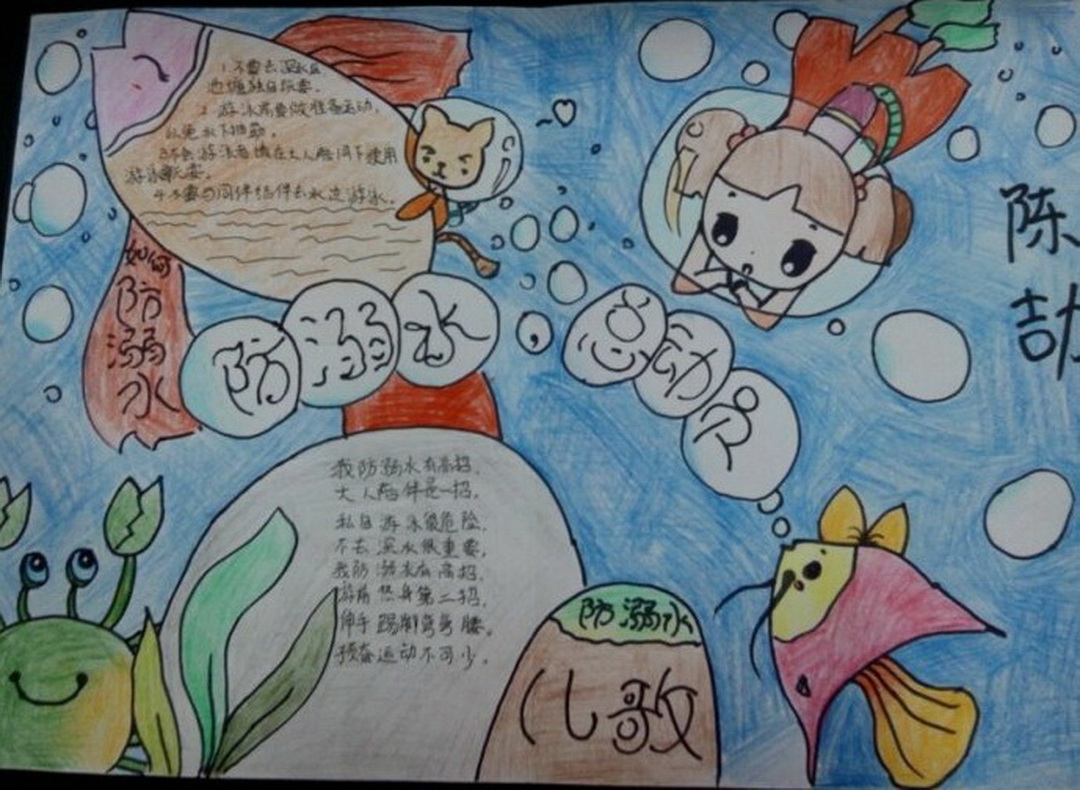 1.不要去深水区
也独自玩耍.
2.游泳前要做准备运动,
以免水下抽筋.
3不会游泳者慎在大人陪同下使用
游泳圈玩耍.
4不要与同伴结伴去水边游泳.
如何
防
溺
水
防溺水,总动员
陈
劼
我防溺水有高招,
大人陪伴是一招,
私自游泳很危险,
不去深水很重要,
我防溺水有高招,
游前热身第二招,
伸手踢脚弯弯腰,
预备运动不可少。
防溺水
儿歌